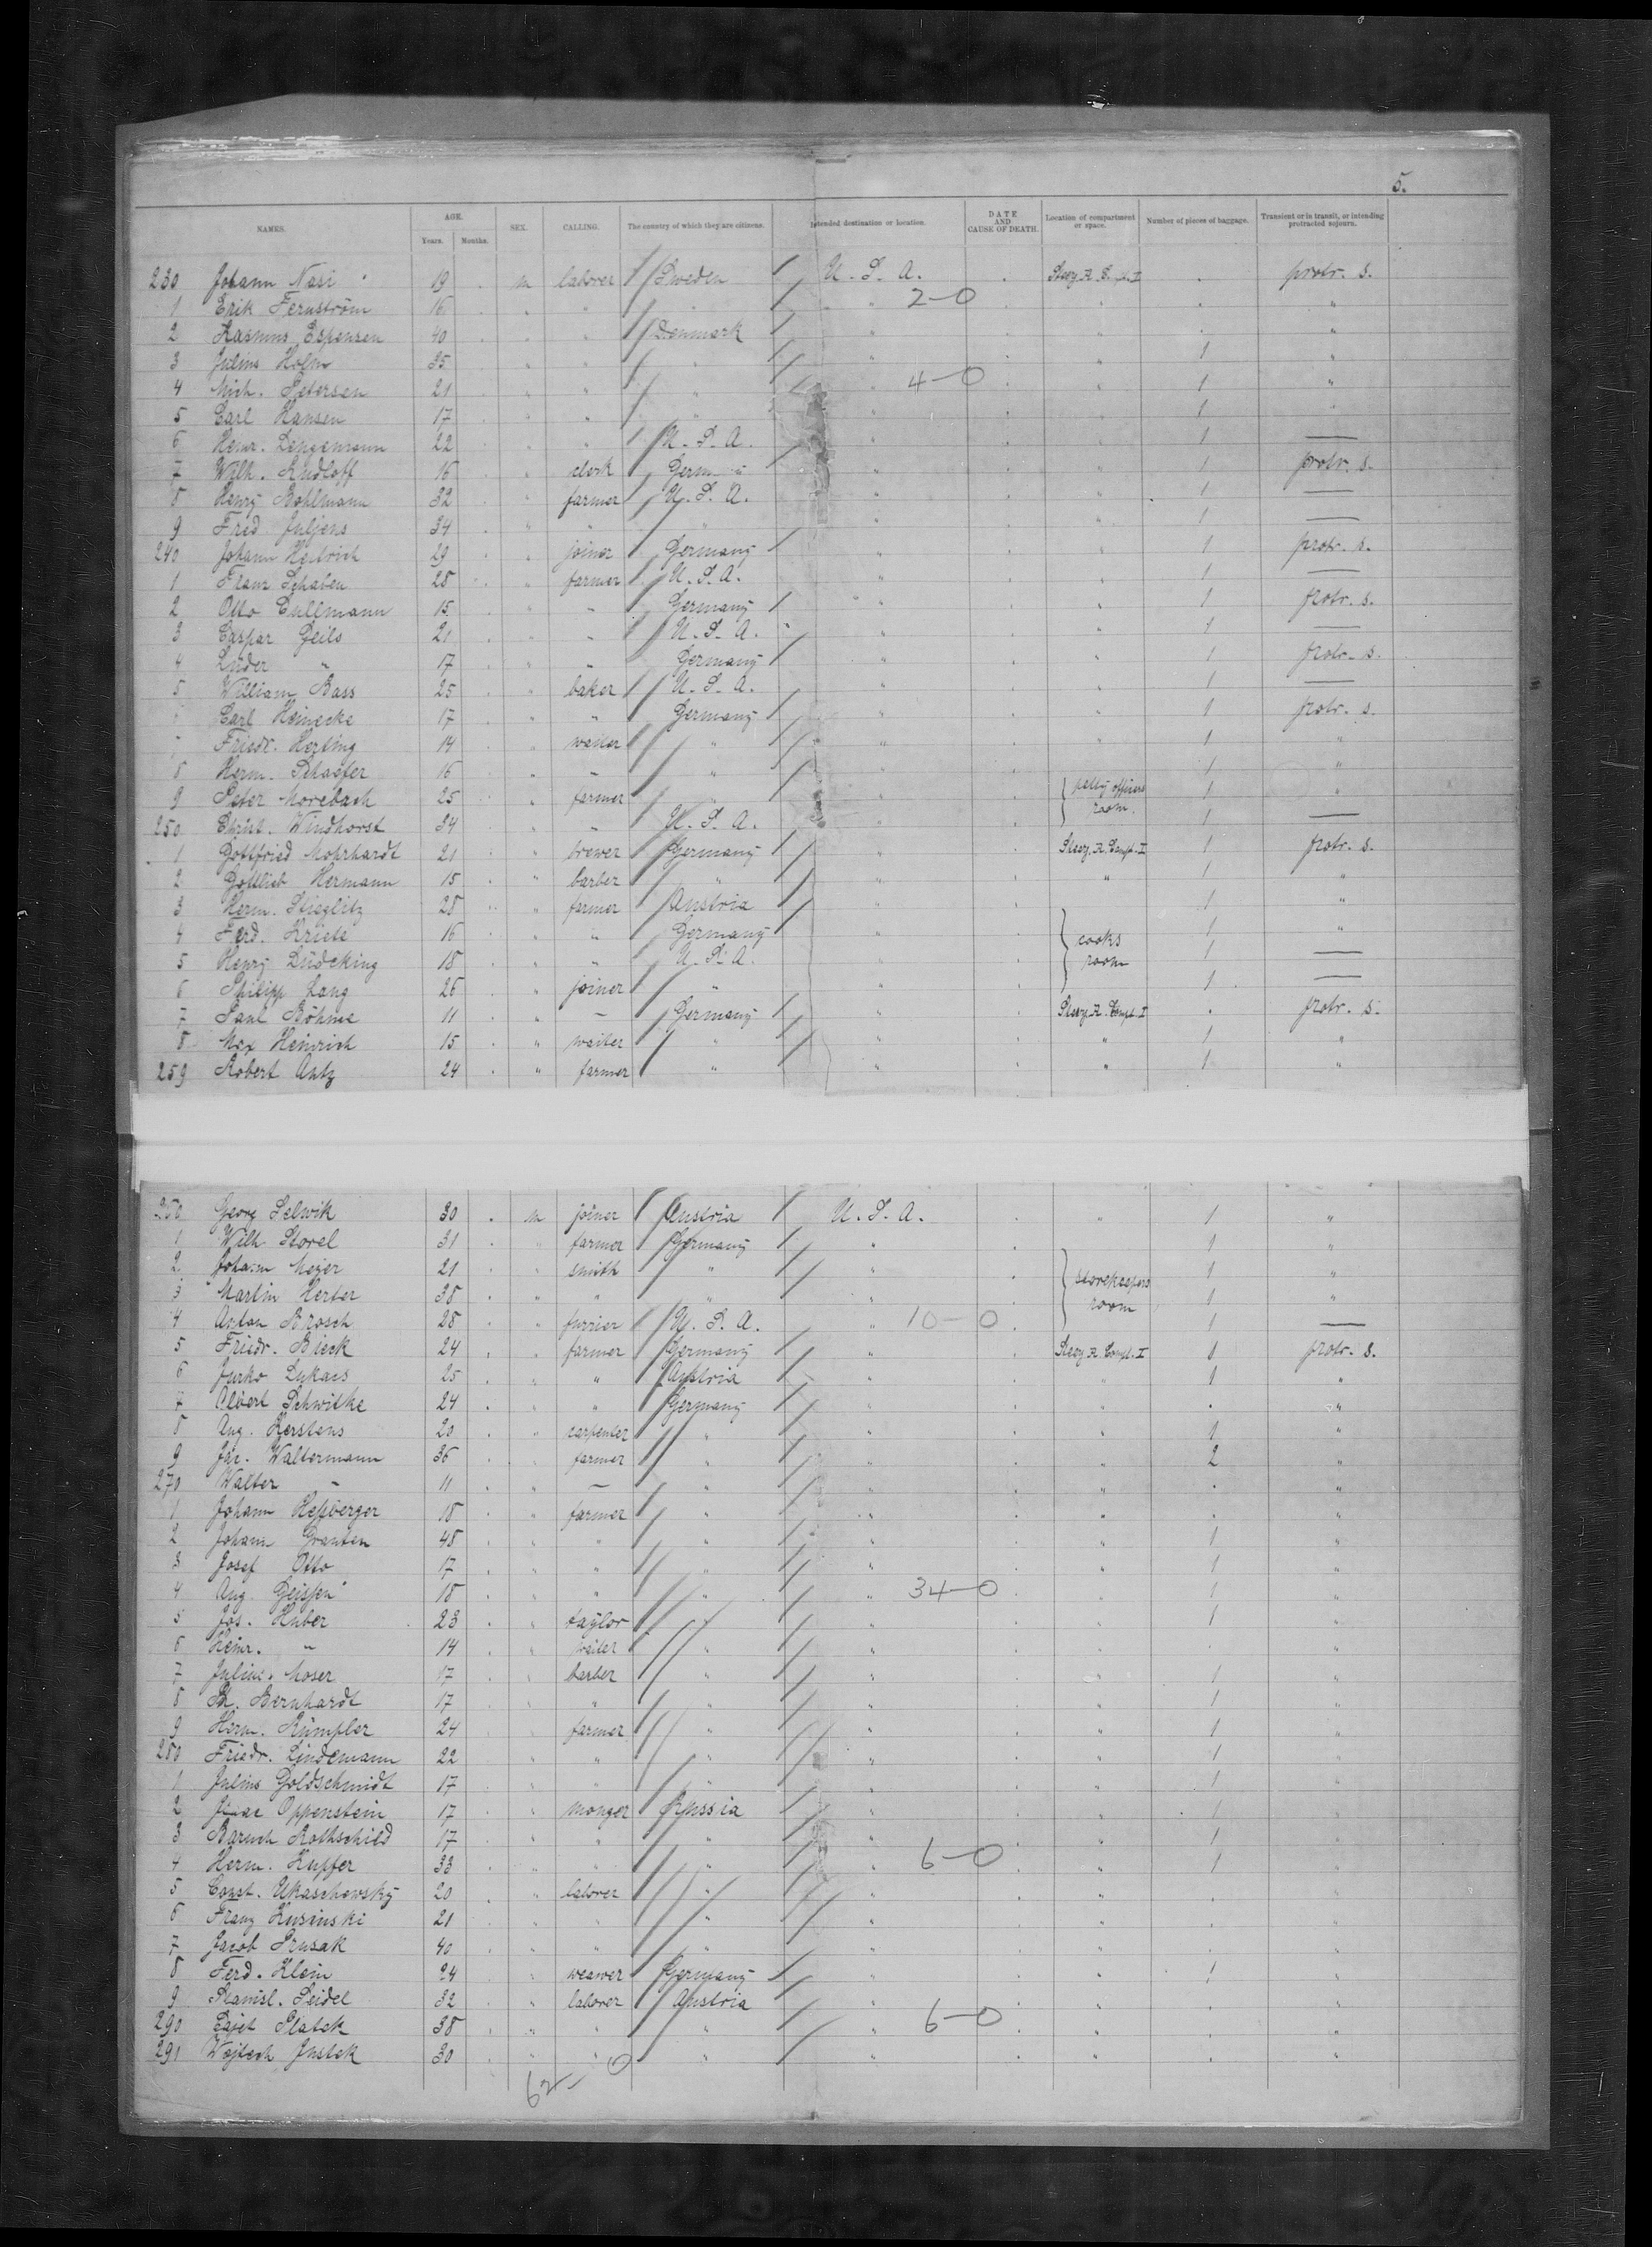 5.
NAMES. AGE. Years. Months. SEX. CALLING. The country of which they are citizens. Intended destination or location. DATE AND CAUSE OF DEATH. Location of compartment or space. Number of pieces of baggage. Transient or in transit, or intending protracted sojourn.
230 Johann Nasi 19 . m laborer Sweden U. S. A. . Steer. A. Compt. I . protr. s.
1 Erik Fernström 16 . " " " " 2-0 . " . "
2 Rasmus Espensen 40 . " " Denmark " . " . "
3 Julius Holm 35 . " " " " . " 1 "
4 Mich. Petersen 21 . " " " " 4-0 . " 1 "
5 Carl Hansen 17 . " " " " . " 1 "
6 Heinr. Dengemann 22 . " " U. S. A. " . " 1 —
7 Wilh. Rudloff 16 . " clerk Germany " . " 1 protr. s.
8 Henry Bohlmann 32 . " farmer U. S. A. " . " 1 —
9 Fred Juljens 34 . " " " " . " 1 —
240 Johann Heitrich 29 . " joiner Germany " . " 1 protr. s.
1 Franz Schaben 28 . " farmer U. S. A. " . " 1 —
2 Otto Cullmann 15 . " " Germany " . " 1 protr. s.
3 Caspar Geils 21 . " " U. S. A. " . " 1 —
4 Lüder " 17 . " " Germany " . " 1 protr. s.
5 William Bass 25 . " baker U. S. A. " . " 1 —
Carl Heinecke 17 . " " Germany " . " 1 protr. s.
Friedr. Herting 14 . " waiter " " . " 1 "
8 Herm. Schaefer 16 . " — " " . 1 "
9 Peter Morebach 25 . " farmer " " . petty officers room 1 "
250 Christ. Windhorst 34 . " " U. S. A. " . 1 —
1 Gottfried Mohrhardt 21 . " brewer Germany " . Steer. A. Compt. I 1 protr. s.
2 Gottlieb Hermann 15 . " barber " " . " 1 "
3 Herm. Stieglitz 28 . " farmer Austria " . 1 "
4 Ferd. Kriete 16 . " " Germany " . cooks room 1 "
5 Henry Lüdeking 18 . " " U. S. A. " . 1 —
6 Philipp Lang 26 . " joiner " " . 1 —
7 Paul Böhme 11 . " — Germany " . Steer. A. Compt. I . protr. s.
8 Max Heinrich 15 . " waiter " " . " 1 "
259 Robert Antz 24 . " farmer " " . " 1 "
260 Georg Selwik 30 . m joiner Austria U. S. A. . " 1 "
1 Wilh Storel 31 . " farmer Germany " . 1 "
2 Johann Meyer 21 . " smith " " . storekeepers room 1 "
3 Martin Herter 38 . " " " " . 1 "
4 Anton Brosch 28 . " furrier U. S. A. " 10-0 . 1 —
5 Friedr. Bieck 24 . " farmer Germany " . Steer. A. Compt. I 1 protr. s.
6 Jurko Lukacs 25 . " " Austria " . " 1 "
7 Albert Schwitke 24 . " " Germany " . " . "
8 Aug. Kerstens 20 . " carpenter " " . " 1 "
9 Jac. Waltermann 36 . " farmer " " . " 2 "
270 Walter — 11 . " — " " . " . "
1 Johann Heßberger 18 . " farmer " " . " . "
2 Johann Granten 48 . " " " " . " 1 "
3 Josef Otto 17 . " " " " . " 1 "
4 Aug. Geissen 18 . " " " " 34-0 . " 1 "
5 Jos. Huber 23 . " taylor " " . " 1 "
6 Heinr. " 14 . " waiter " " . " . "
7 Julius Moser 17 . " barber " " . " 1 "
8 Bernhardt 17 . " " " " . " 1 "
9 Herm. Rümpler 24 . " farmer " " . " 1 "
280 Friedr. Lindemann 22 . " " " " . " 1 "
1 Julius Goldschmidt 17 . " " " " . " 1 "
2 Isaac Oppenstein 17 . " monger Russia " . " 1 "
3 Baruch Rothschild 17 . " " " " . " 1 "
4 Herm. Kupfer 33 . " " " " 6-0 . " 1 "
5 Const. Ukaschewsky 20 . " laborer " " . " . "
6 Franz Kusinski 21 . " " " " . " . "
7 Jacob Prusak 40 . " " " " . " . "
8 Ferd. Klein 24 . " weawer Germany " . " 1 "
9 Stanisl. Seidel 32 . " laborer Austria " . " . "
290 Platek 38 . " " " " 6-0 . " . "
291 Wojtech Justek 30 . " " " " . " . "
62-0